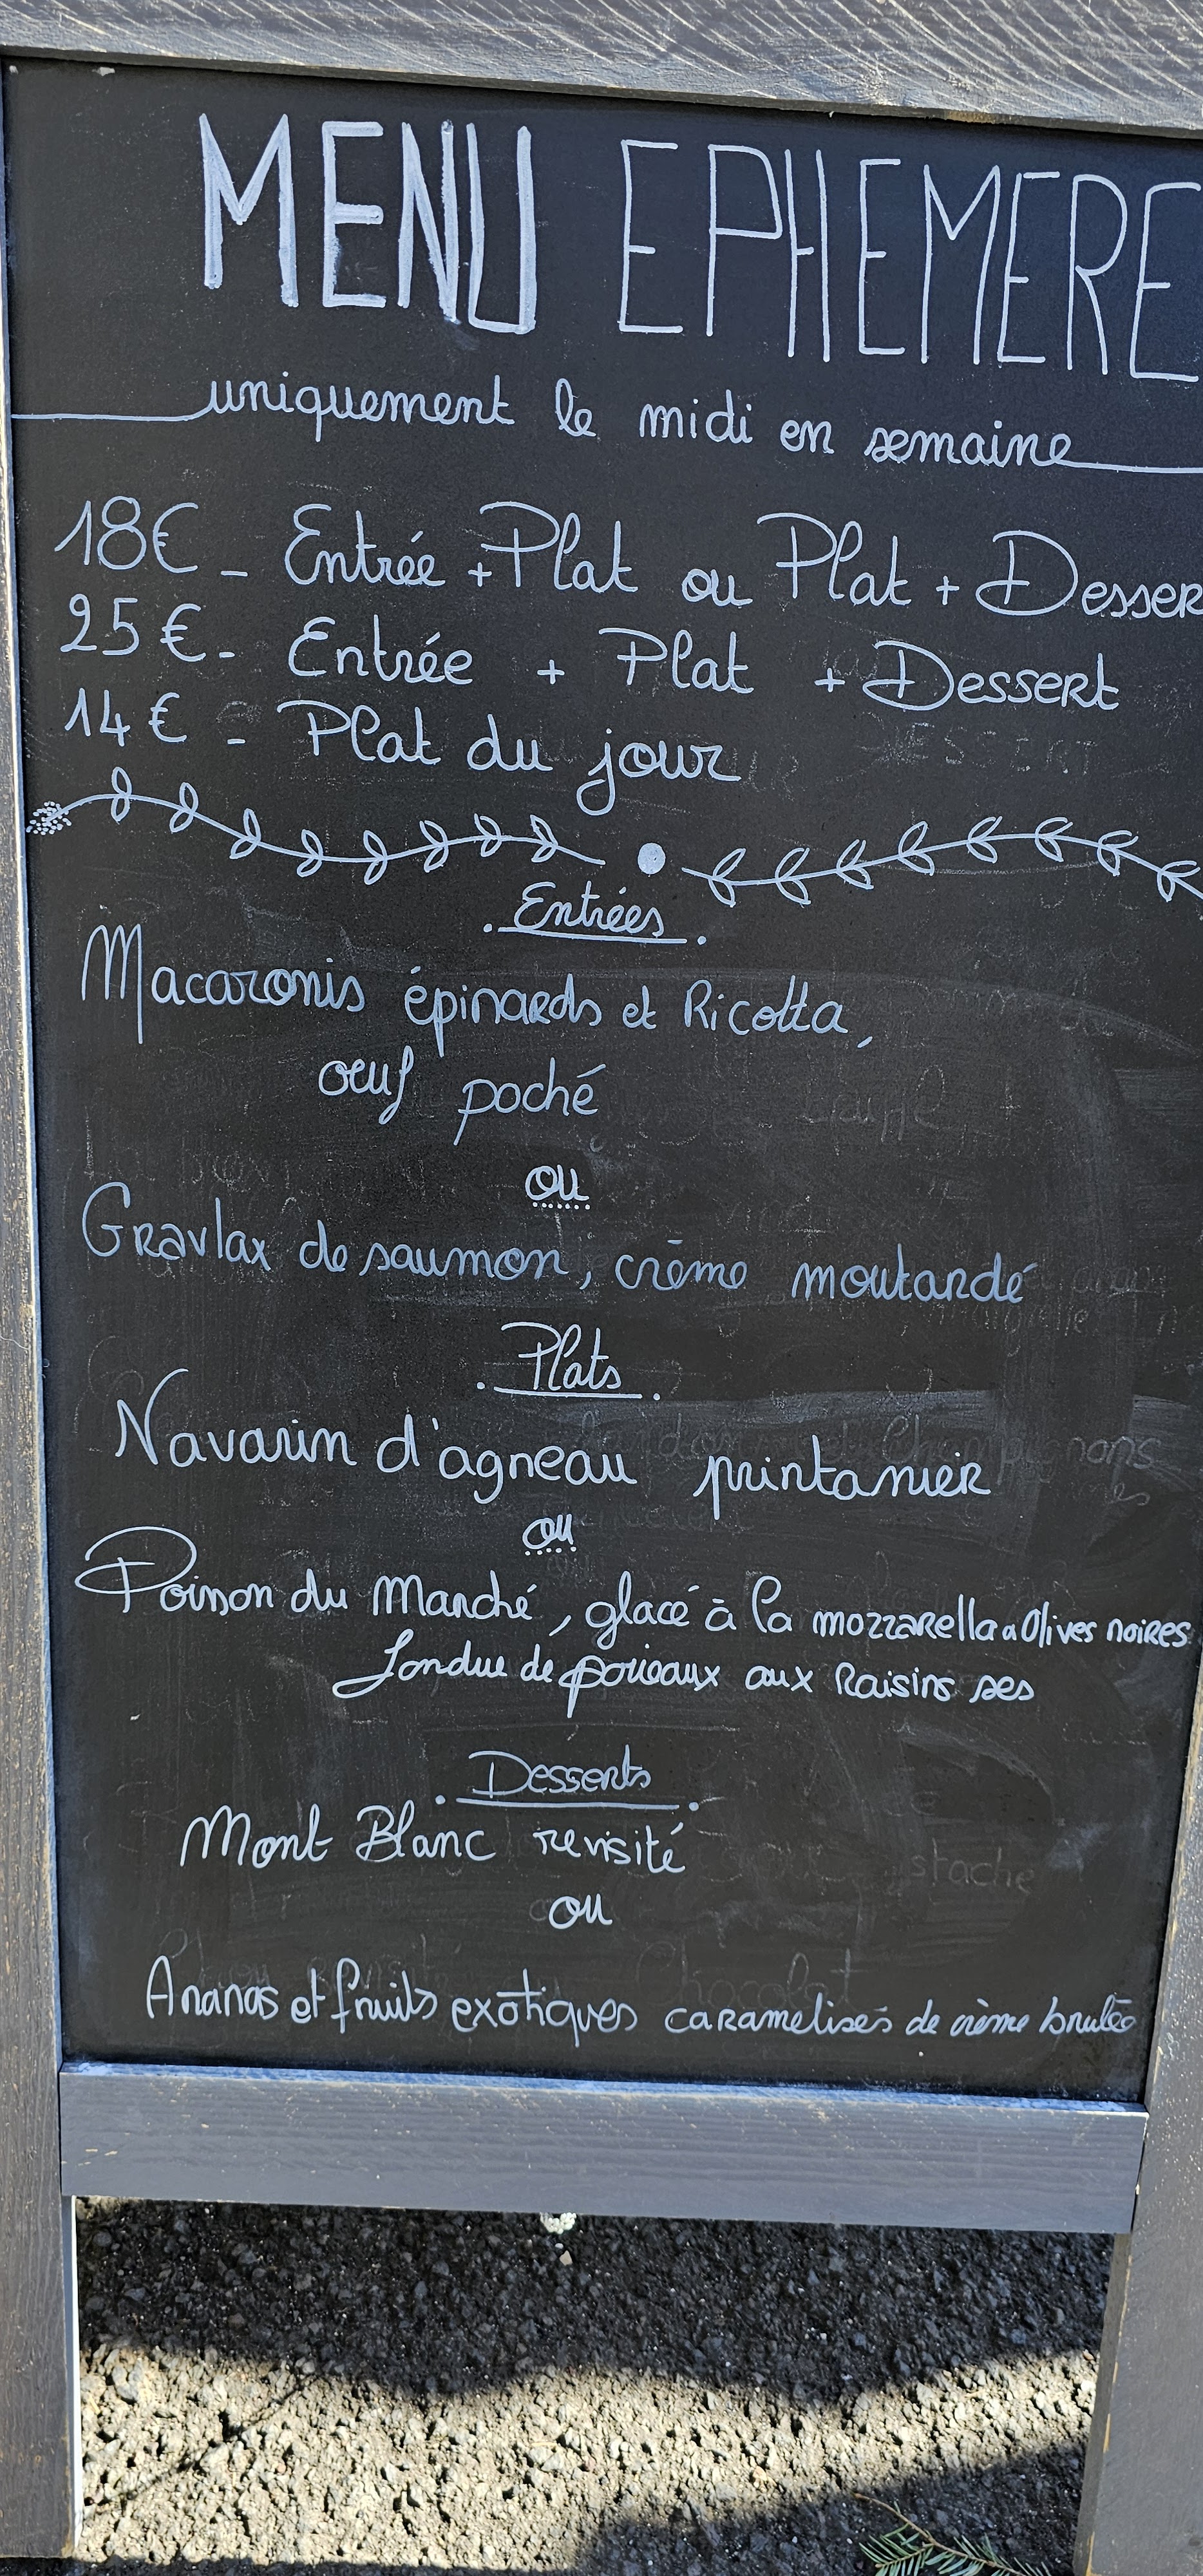 MENU EPHEMERE
uniquement le midi en semaine
18€ - Entrée + Plat ou Plat + Desser
25€ - Entrée + Plat + Dessert
14€ - Plat du jour
Entrées
Macaronis épinards et Ricotta,
oeuf poché
ou
Gravlax de saumon, crème moutardé
Plats
Navarin d'agneau printanier
ou
Poisson du Marché, glacé à la mozzarella Olives noires
fondue de poireaux aux Raisins secs
Desserts
Mont Blanc revisité
ou
Ananas et fruits exotiques caramelisés de crème brulée